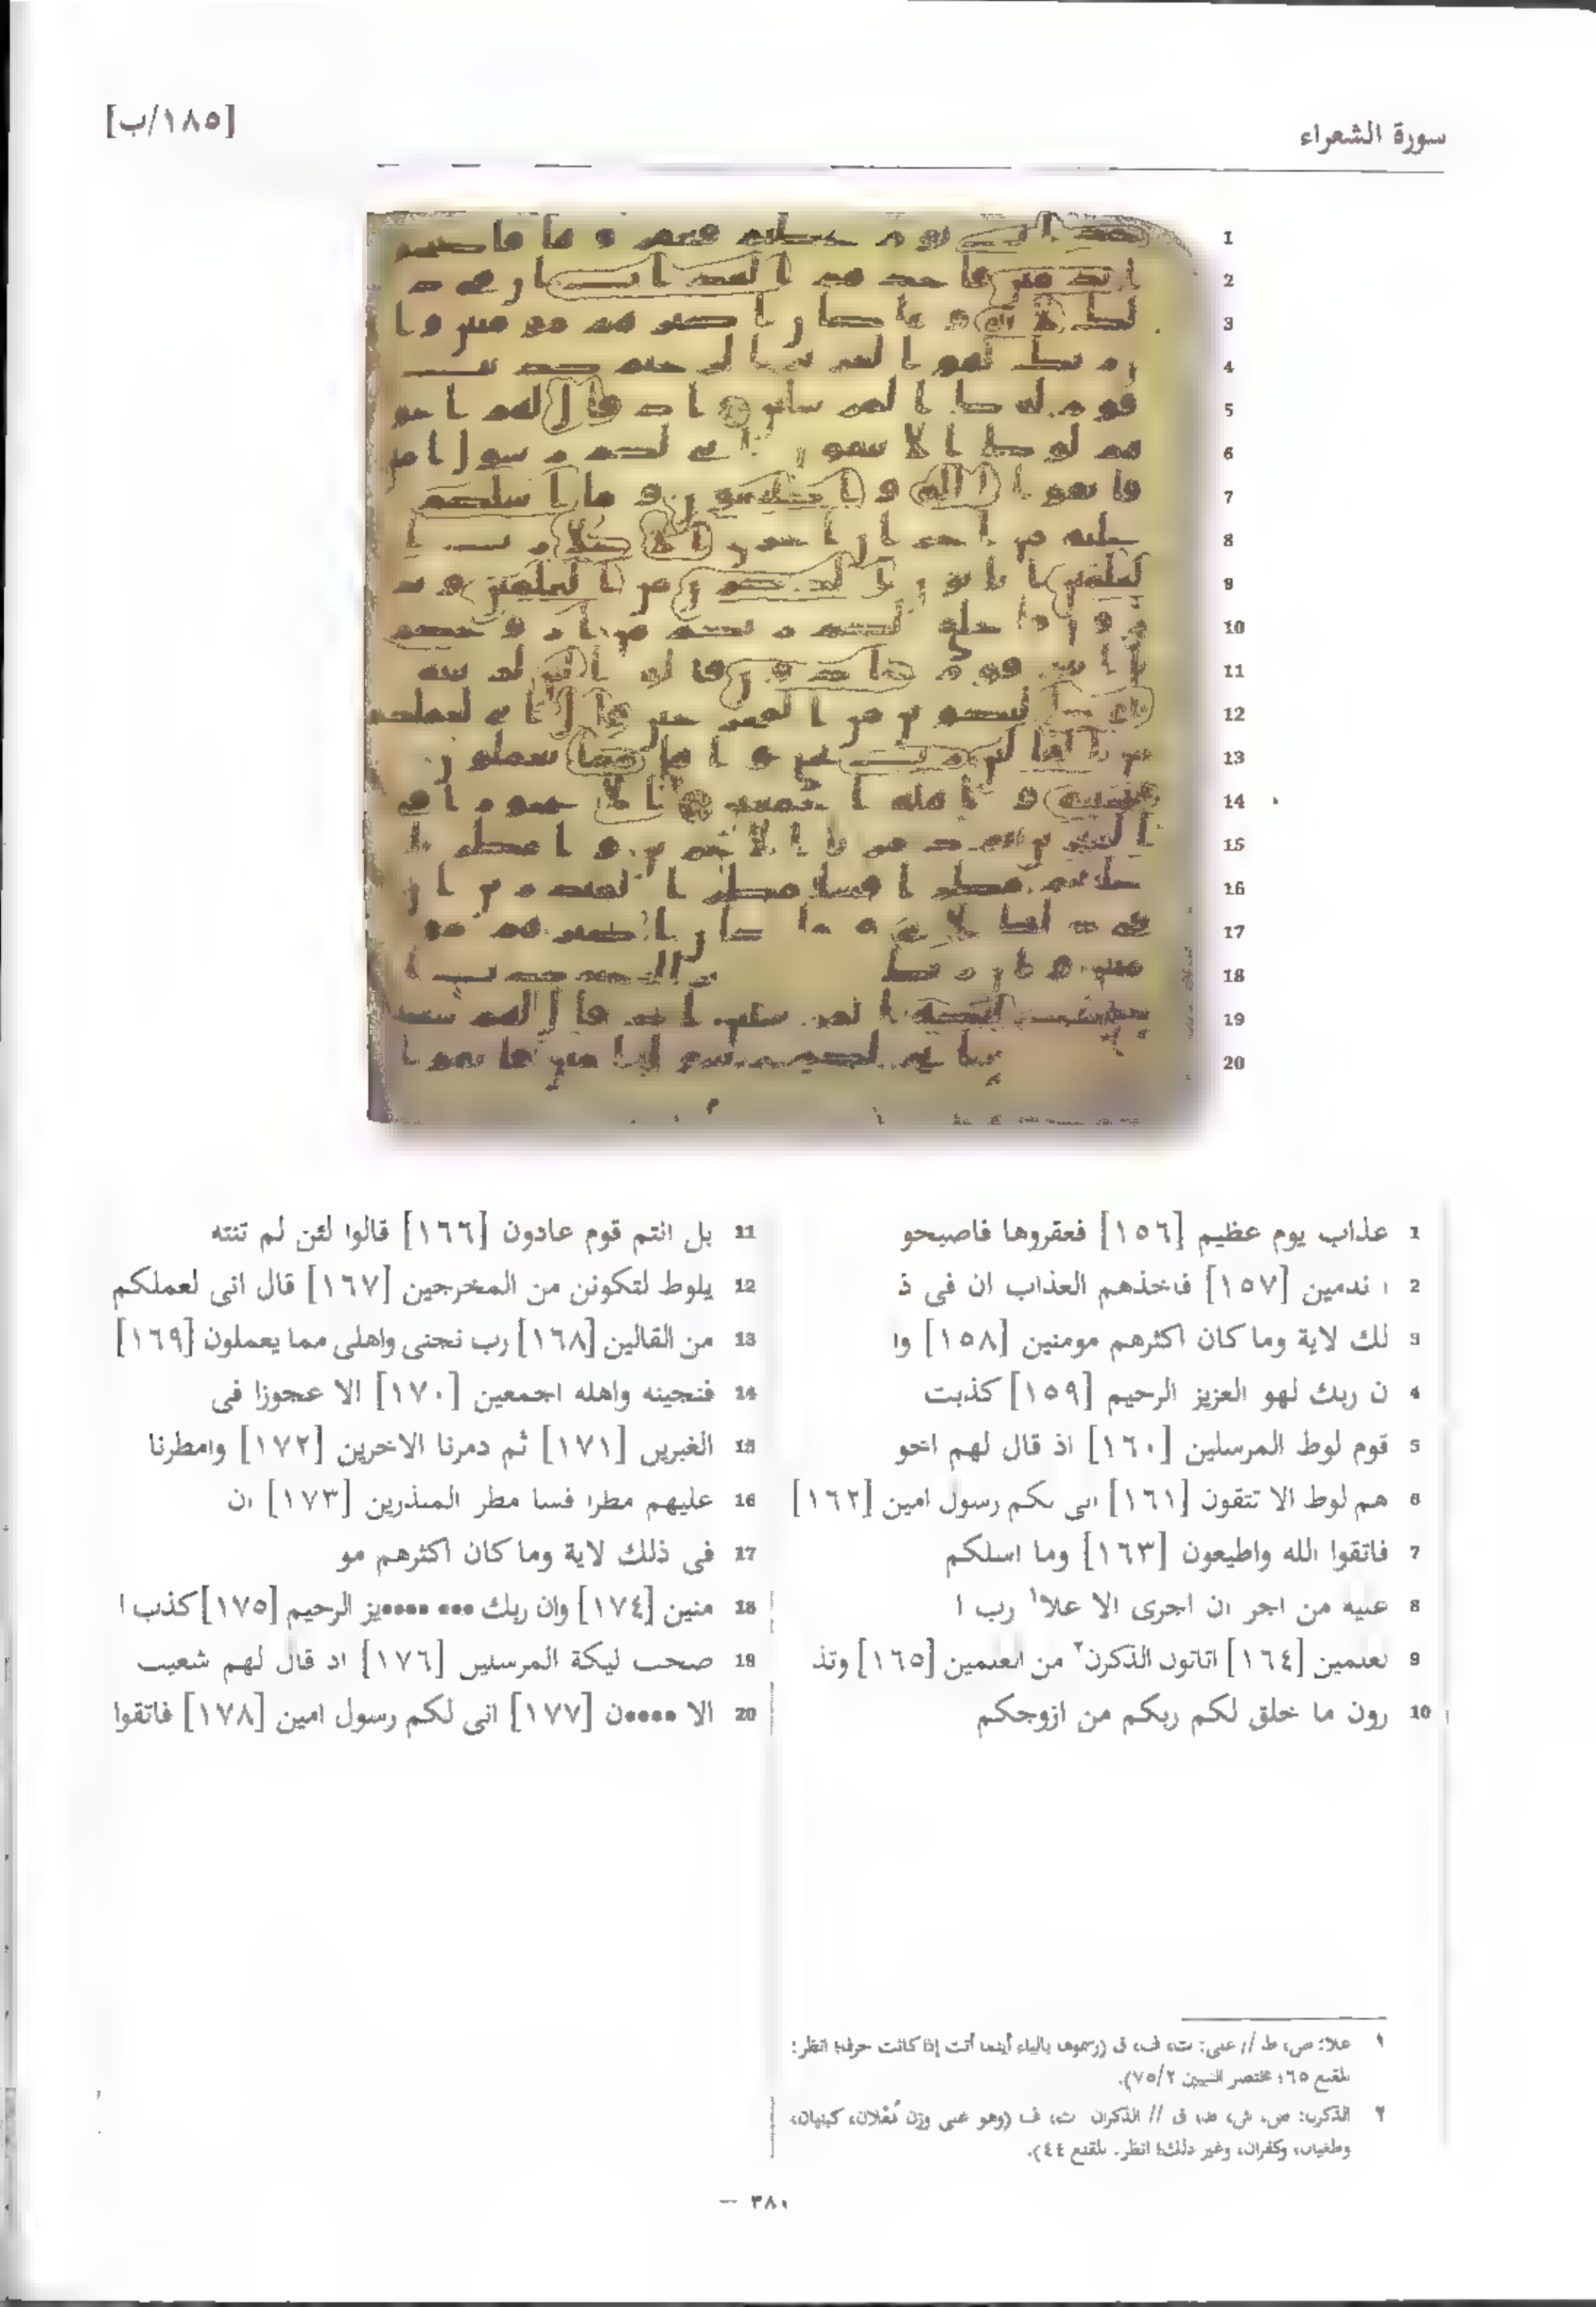 سورة الشعراء
[١٨٥/ب]
1 عذاب يوم عظيم [١٥٦] فعقروها فاصبحو
2 ا ندمين [١٥٧] فاخذهم العذاب ان فى ذ
3 لك لاية وما كان اكثرهم مومنين [١٥٨] وا
4 ن ربك لهو العزيز الرحيم [١٥٩] كذبت
5 قوم لوط المرسلين [١٦٠] اذ قال لهم اخو
6 هم لوط الا تتقون [١٦١] انى لكم رسول امين [١٦٢]
7 فاتقوا الله واطيعون [١٦٣] وما اسلكم
8 عليه من اجر ان اجرى الا علا١ رب ا
9 لعلمين [١٦٤] اتاتون الذكرن٢ من العلمين [١٦٥] وتذ
10 رون ما خلق لكم ربكم من ازوجكم
11 بل انتم قوم عادون [١٦٦] قالوا لئن لم تنته
12 يلوط لتكونن من المخرجين [١٦٧] قال انى لعملكم
13 من القالين [١٦٨] رب نجنى واهلى مما يعملون [١٦٩]
14 فنجينه واهله اجمعين [١٧٠] الا عجوزا فى
15 الغبرين [١٧١] ثم دمرنا الاخرين [١٧٢] وامطرنا
16 عليهم مطرا فسا مطر المنذرين [١٧٣] ان
17 فى ذلك لاية وما كان اكثرهم مو
18 منين [١٧٤] وان ربك ••• ••••يز الرحيم [١٧٥] كذب ا
19 صحب ليكة المرسلين [١٧٦] اذ قال لهم شعيب
20 الا ••••ن [١٧٧] انى لكم رسول امين [١٧٨] فاتقوا
١ علا: ص، ط // على: ت، ف، ق (رسموها بالياء أينما أتت إذا كانت حرفا؛ انظر:
المقنع ٦٥؛ مختصر التبيين ٧٥/٢).
٢ الذكرن: ص، ش، ط، ق // الذكران: ت، ف (وهو على وزن فُعْلان، كبنيان،
وطغيان، وكفران، وغير ذلك؛ انظر: المقنع ٤٤).
٣٨٠ –